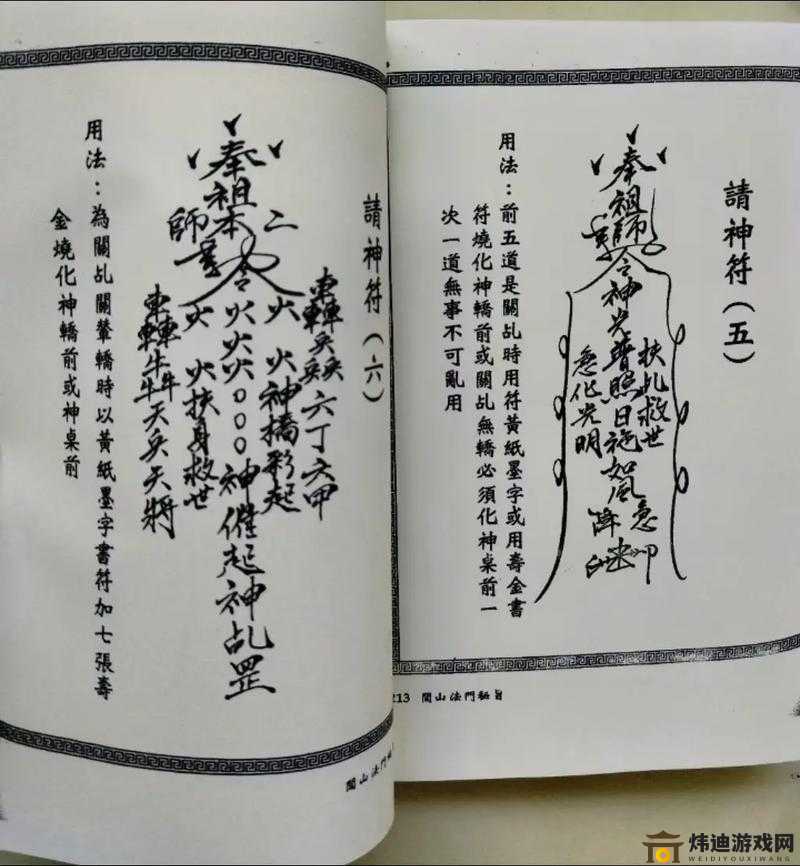 請神符(五)
奉祖師
令神光普照日施如風急
扶乩救世
急化光明
降
用法：前五道是關乩時用符黃紙墨字或用壽金書
符燒化神轎前或關乩無轎必須化神桌前一
次一道無事不可亂用
213 閭山法門秘旨
請神符(六)
奉祖本
師
二
令
火火火○○○神催起神乩罡
火 火神橋彩起
火 火扶身救世
六丁六甲
天兵天將
用法：為關乩關輦轎時以黃紙墨字書符加七張壽
金燒化神轎前或神桌前
閭山法門
炜迪游戏网
WEIDIYOUXIWANG